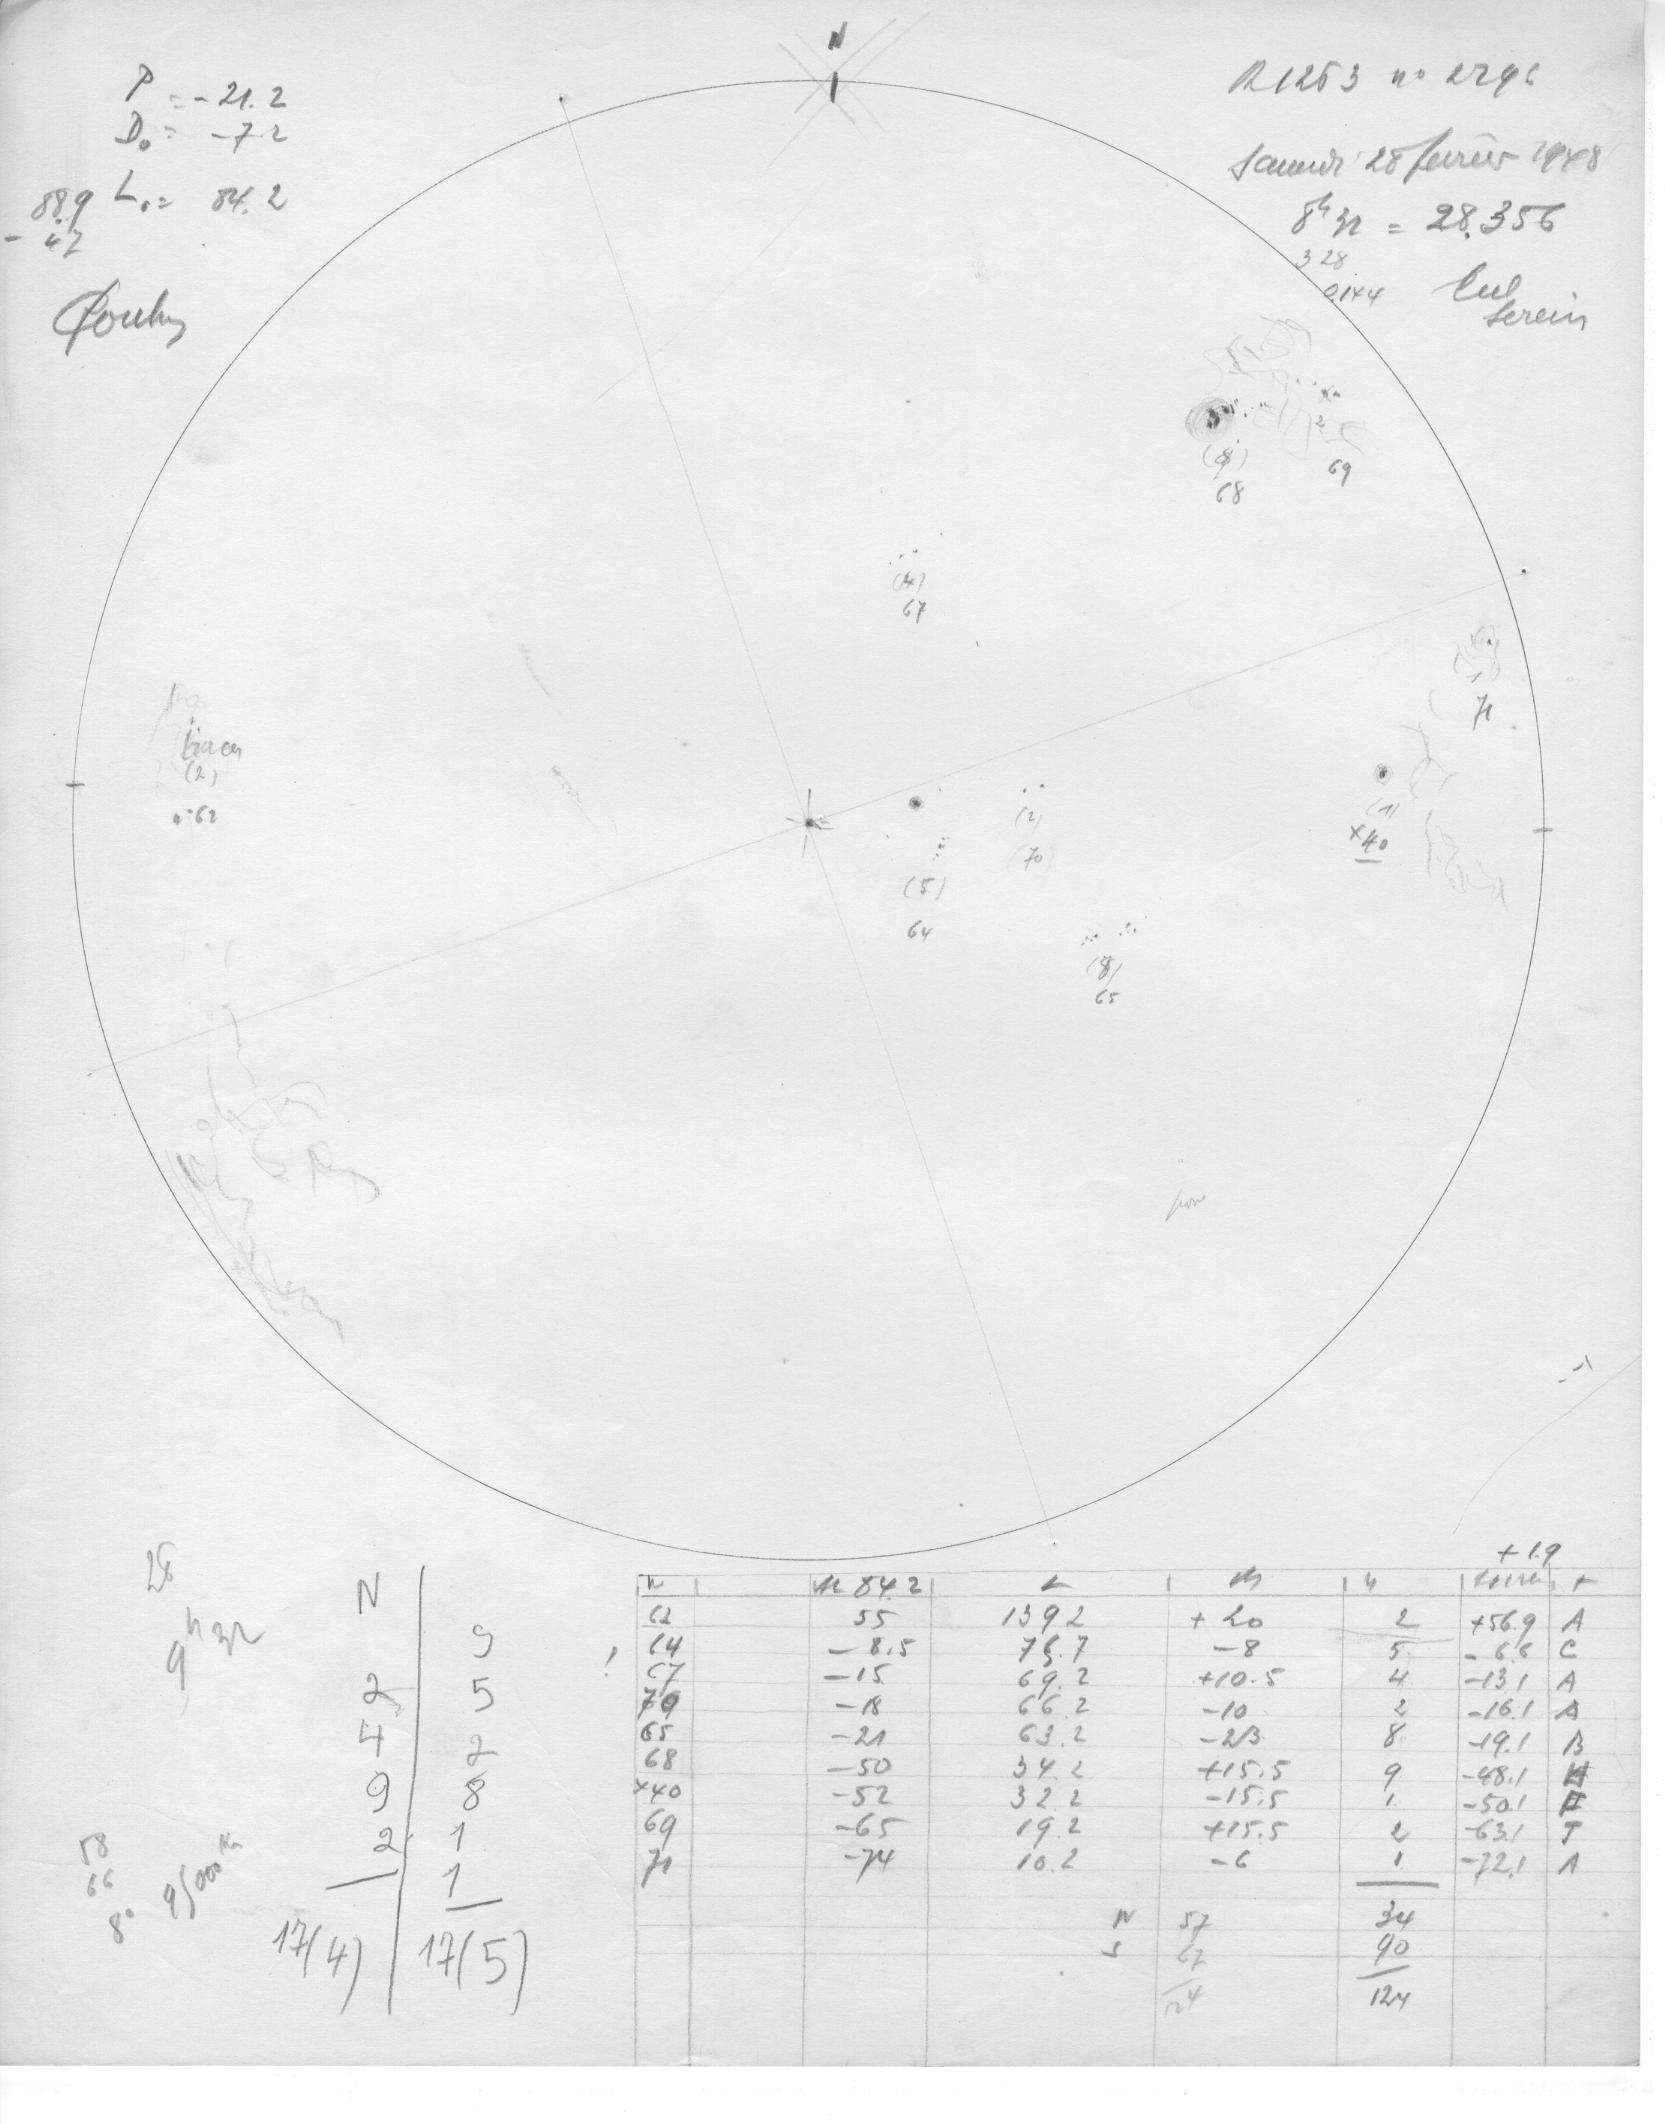 N
P = -21.2
D₀ = -7.2
L₀ = 84.2
88.9
- 4.7
R1253 n° 2296
Samedi 28 février 1948
8h32 = 28.356
328
0.144
Ciel
Serein
(9)
68
2
69
(4)
67
1
71
(2)
n° 62
(1)
×40
(2)
70
(5)
64
(8)
65
28
9h32
58
66
8°
95000 Km
N | S
2 | 5
4 | 2
9 | 8
2 | 1
1
17(4) | 17(5)
+1.9
n M 84.2 L
62 55 139.2 +20 2 +56.9 A
! 64 -8.5 75.7 -8 5 -6.6 C
67 -15 69.2 +10.5 4 -13.1 A
70 -18 66.2 -10 2 -16.1 A
65 -21 63.2 -23 8 -19.1 B
68 -50 34.2 +15.5 9 -48.1 H
×40 -52 32.2 -15.5 1 -50.1
69 -65 19.2 +15.5 2 -63.1 J
71 -74 10.2 -6 1 -72.1 A
N 57 34
S 67 90
124 124